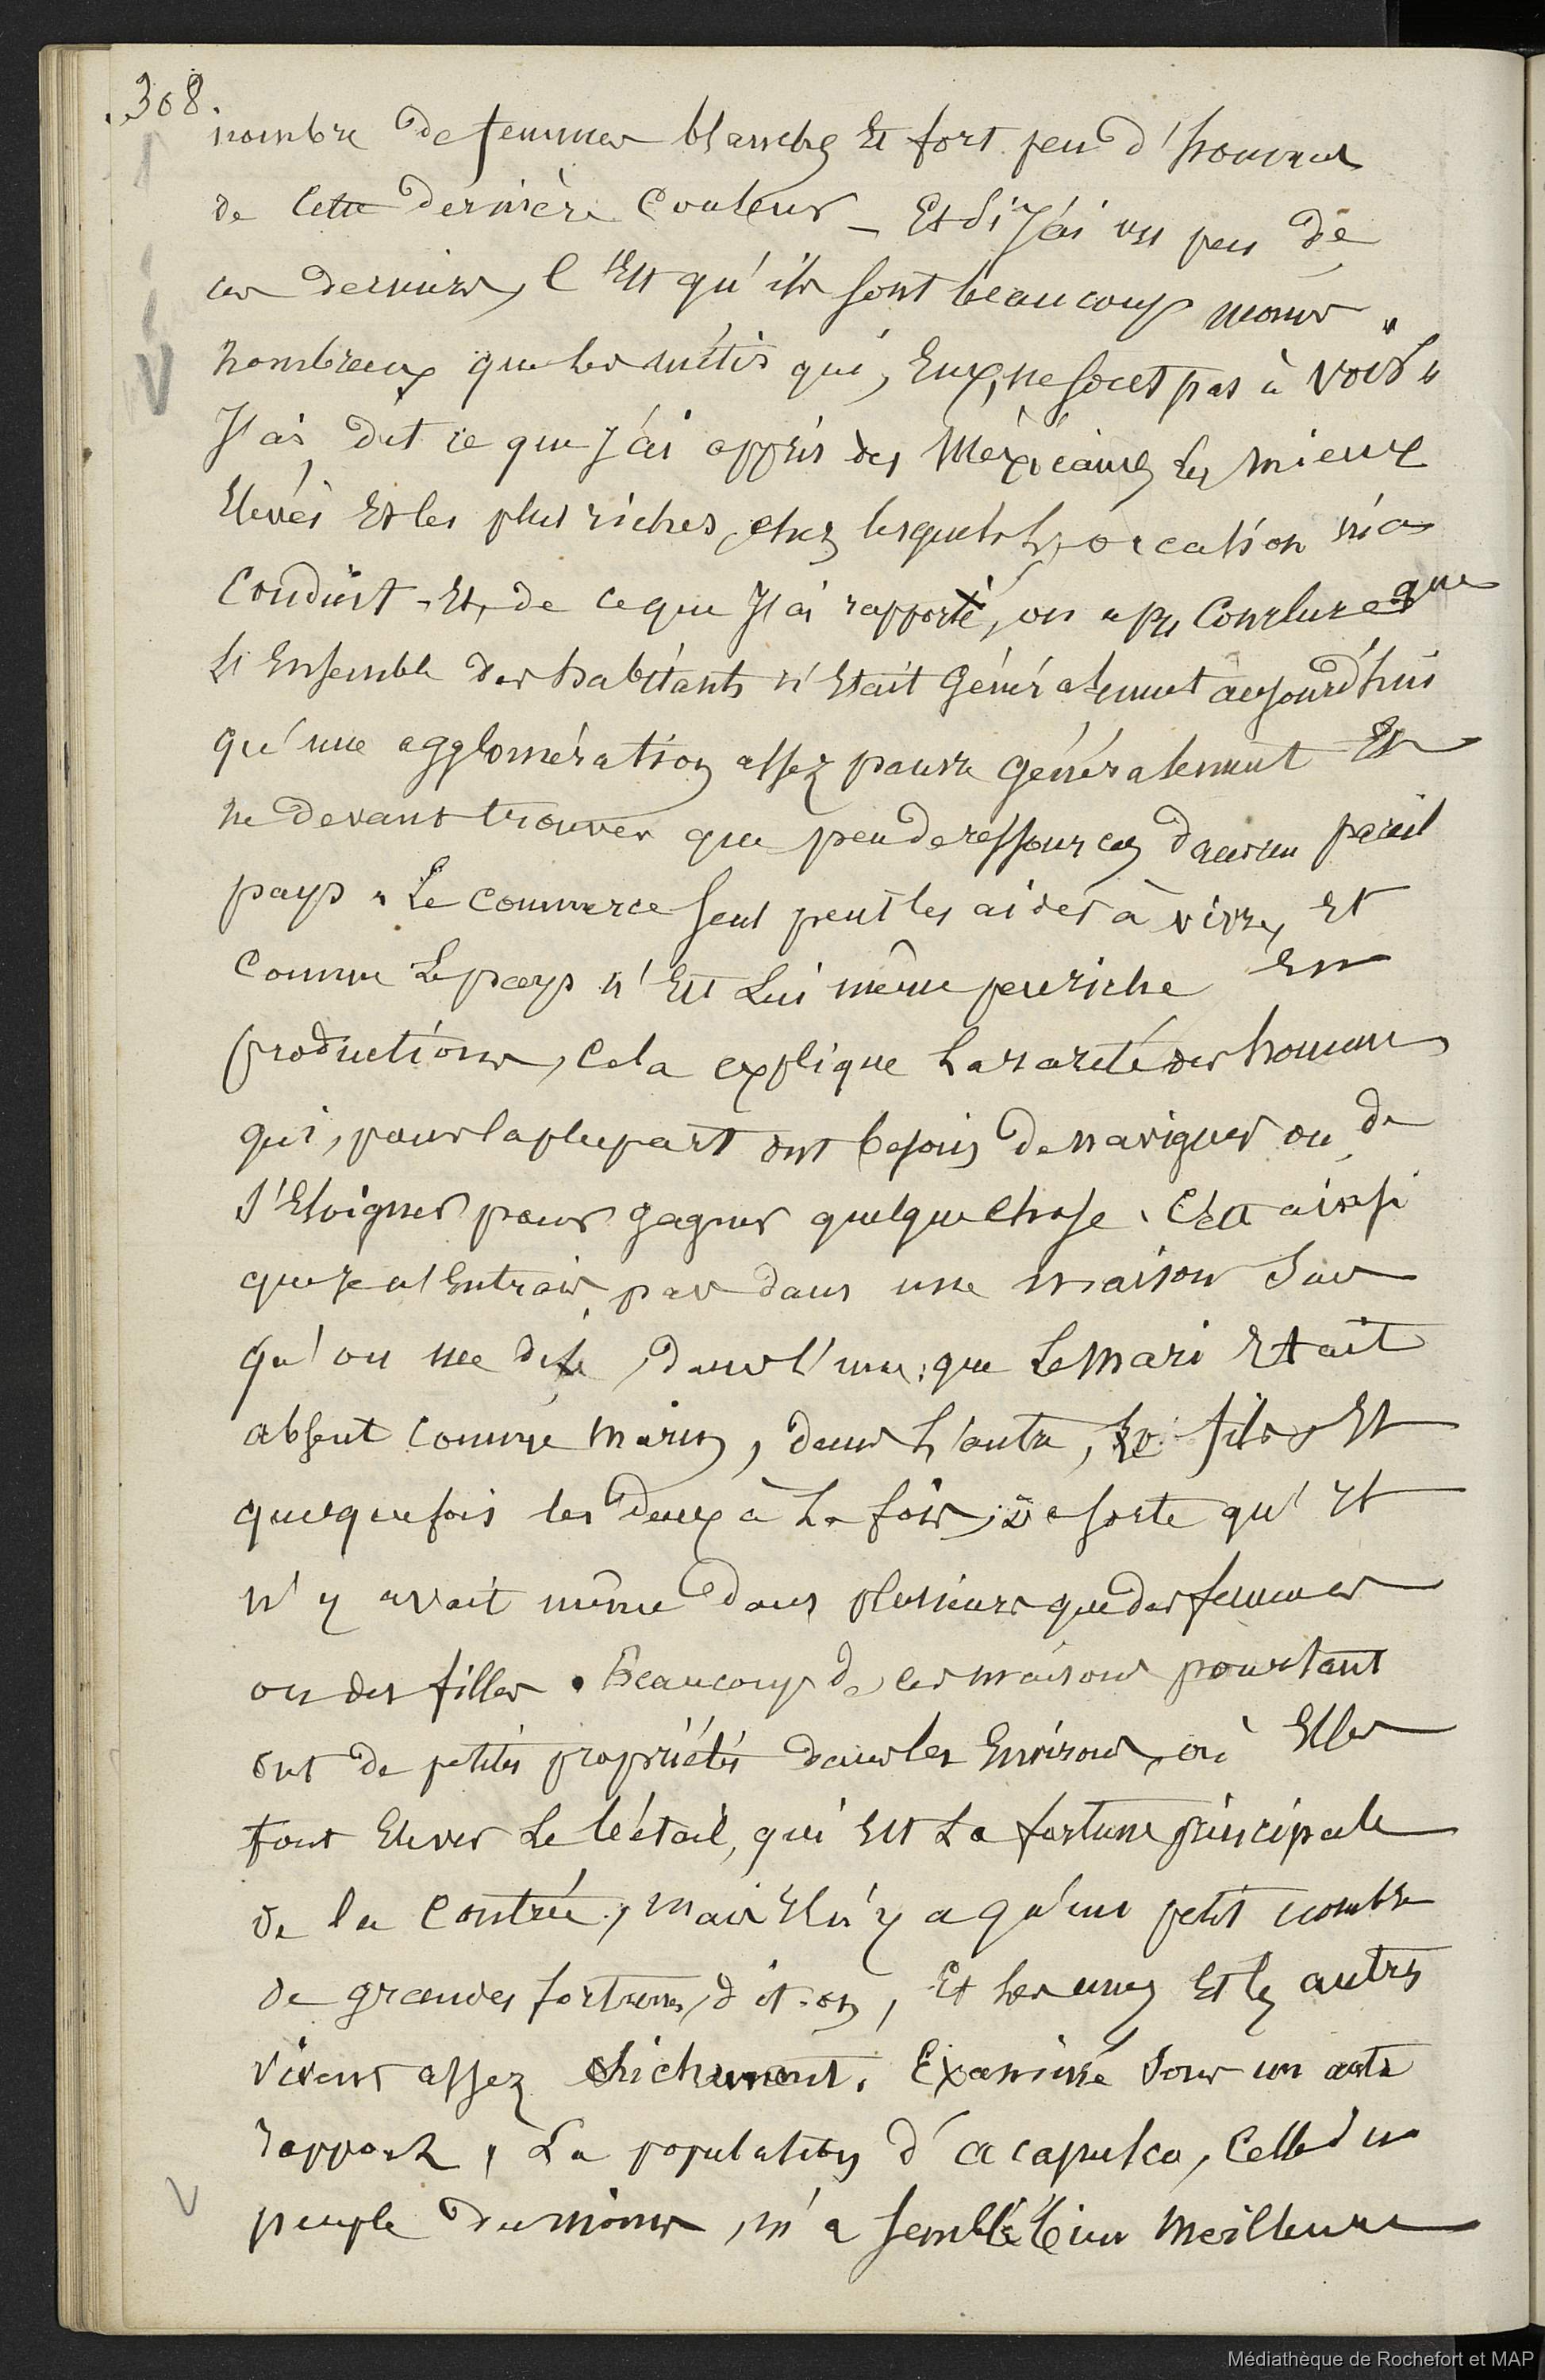 308.
nombre de femmes blanches Et fort peu d'hommes
de Cette dernière Couleur _ Et Si J'ai vu peu de
ces derniers, C'Est qu'ils sont beaucoup moins
nombreux que les métis qui, Eux, ne sont pas à voir.
J'ai dit ce que J'ai appris des Méxicains les mieux
Elevés Et les plus riches, chez lesquels L'occation m'a
Conduit. Et, de ce que J'ai rapporté, on a pu Conclure que
L'Ensemble des habitants n'Etait Généralement aujourd'hui
qu'une agglomération assez pauvre généralement Et
ne devant trouver que peu de ressources dans un pareil
pays. Le commerce seul peut les aider à vivre, Et
Comme Le pays n'Est Lui même peu riche En
productions, Cela explique La rareté des hommes
qui, pour la plupart ont besoin de naviguer ou de
S'Eloigner pour gagner quelque chose. C'Est ainsi
que je n'Entrais pas dans une maison Sans
qu'on me dise, dans l'une, que Le mari Etait
absent comme marin, dans L'autre, Le fils, Et
quelquefois les deux à La fois, de sorte qu'Il
n'y avait même dans plusieurs que des femmes
ou des filles. Beaucoup de ces maisons pourtant
ont de petites propriétés dans les Environs, où Elles
font Elever Le bétail, qui Est La fortune principale
de la Contrée, mais Il n'y a qu'un petit nombre
de grandes fortunes, dit-on, Et Les unes Et les autres
vivent assez chichement. Examiné Sous un autre
rapport, La population d'acapulco, Celle du
peuple du moins, m'a semblé bien meilleure
Médiathèque de Rochefort et MAP